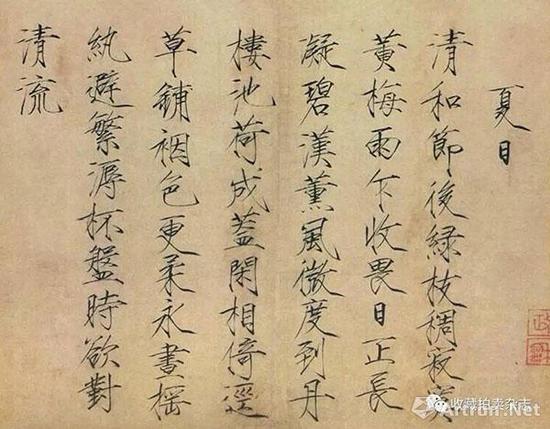 夏日
清和節後緑枝稠寂寞
黄梅雨乍收畏日正長
凝碧漢薫風微度到丹
樓池荷成蓋閑相倚逕
草鋪裀色更柔永晝搖
紈避繁溽杯盤時欲對
清流
收藏拍卖杂志
Artron.Net